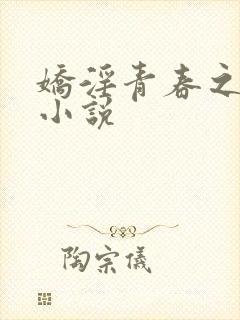 嬌淫青春之
小說
陶宗儀